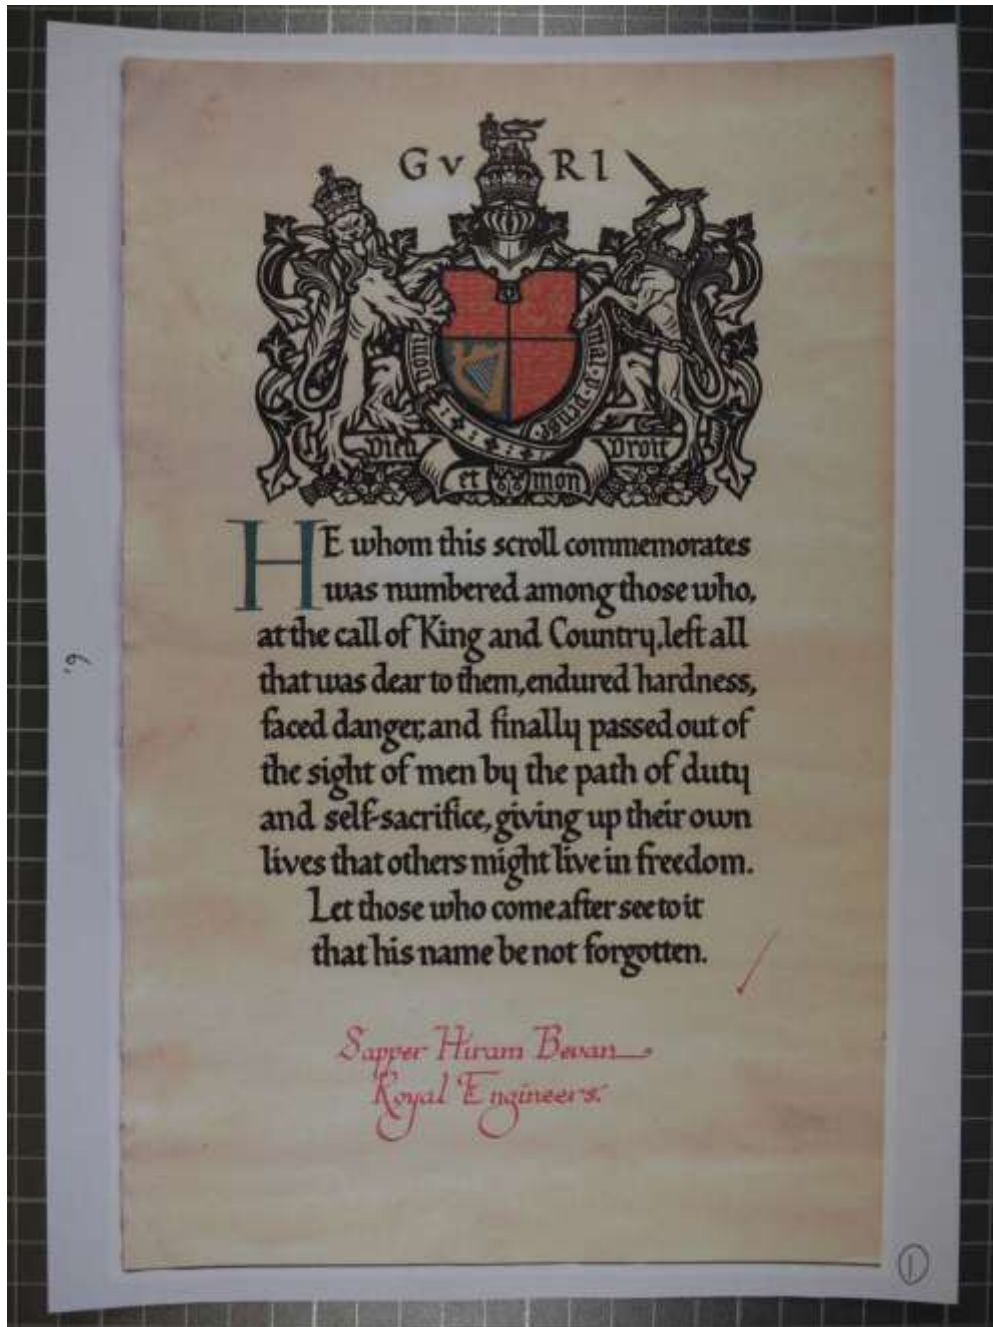 GV RI
Honi
mal·y·pense
Dieu Droit
et mon
HE whom this scroll commemorates
was numbered among those who,
at the call of King and Country, left all
that was dear to them, endured hardness,
faced danger, and finally passed out of
the sight of men by the path of duty
and self-sacrifice, giving up their own
lives that others might live in freedom.
Let those who come after see to it
that his name be not forgotten.
Sapper Hiram Bevan
Royal Engineers.
6.
1